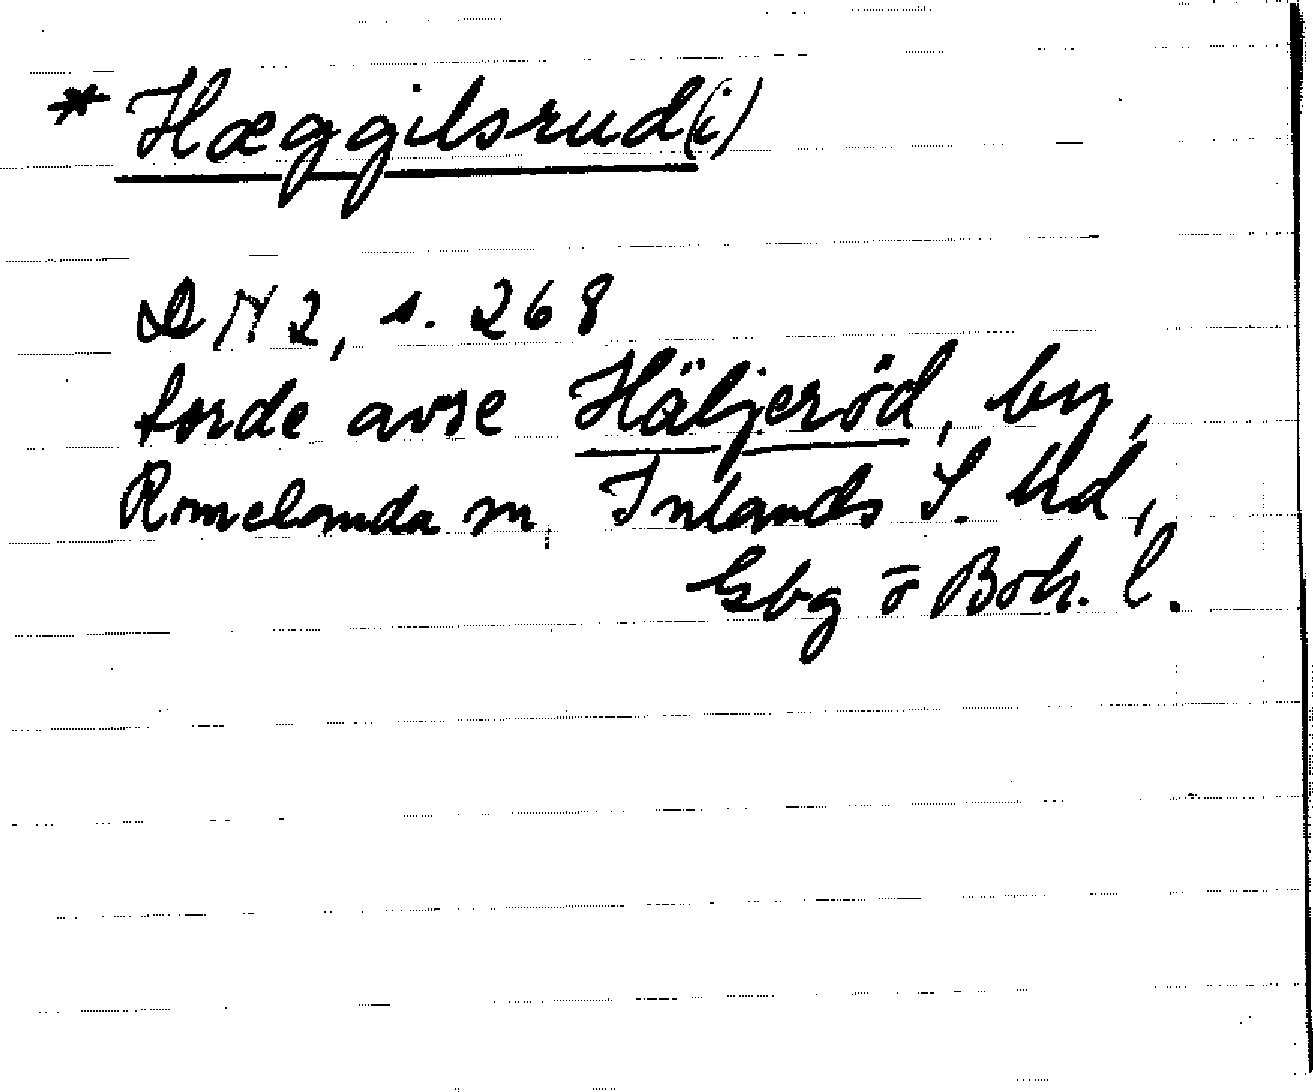 * Hæggilsrud(i)
DN 2, s. 268
torde avse Häljeröd, by,
Romelanda sn, Inlands S. hd,
Gbg o Boh. l.